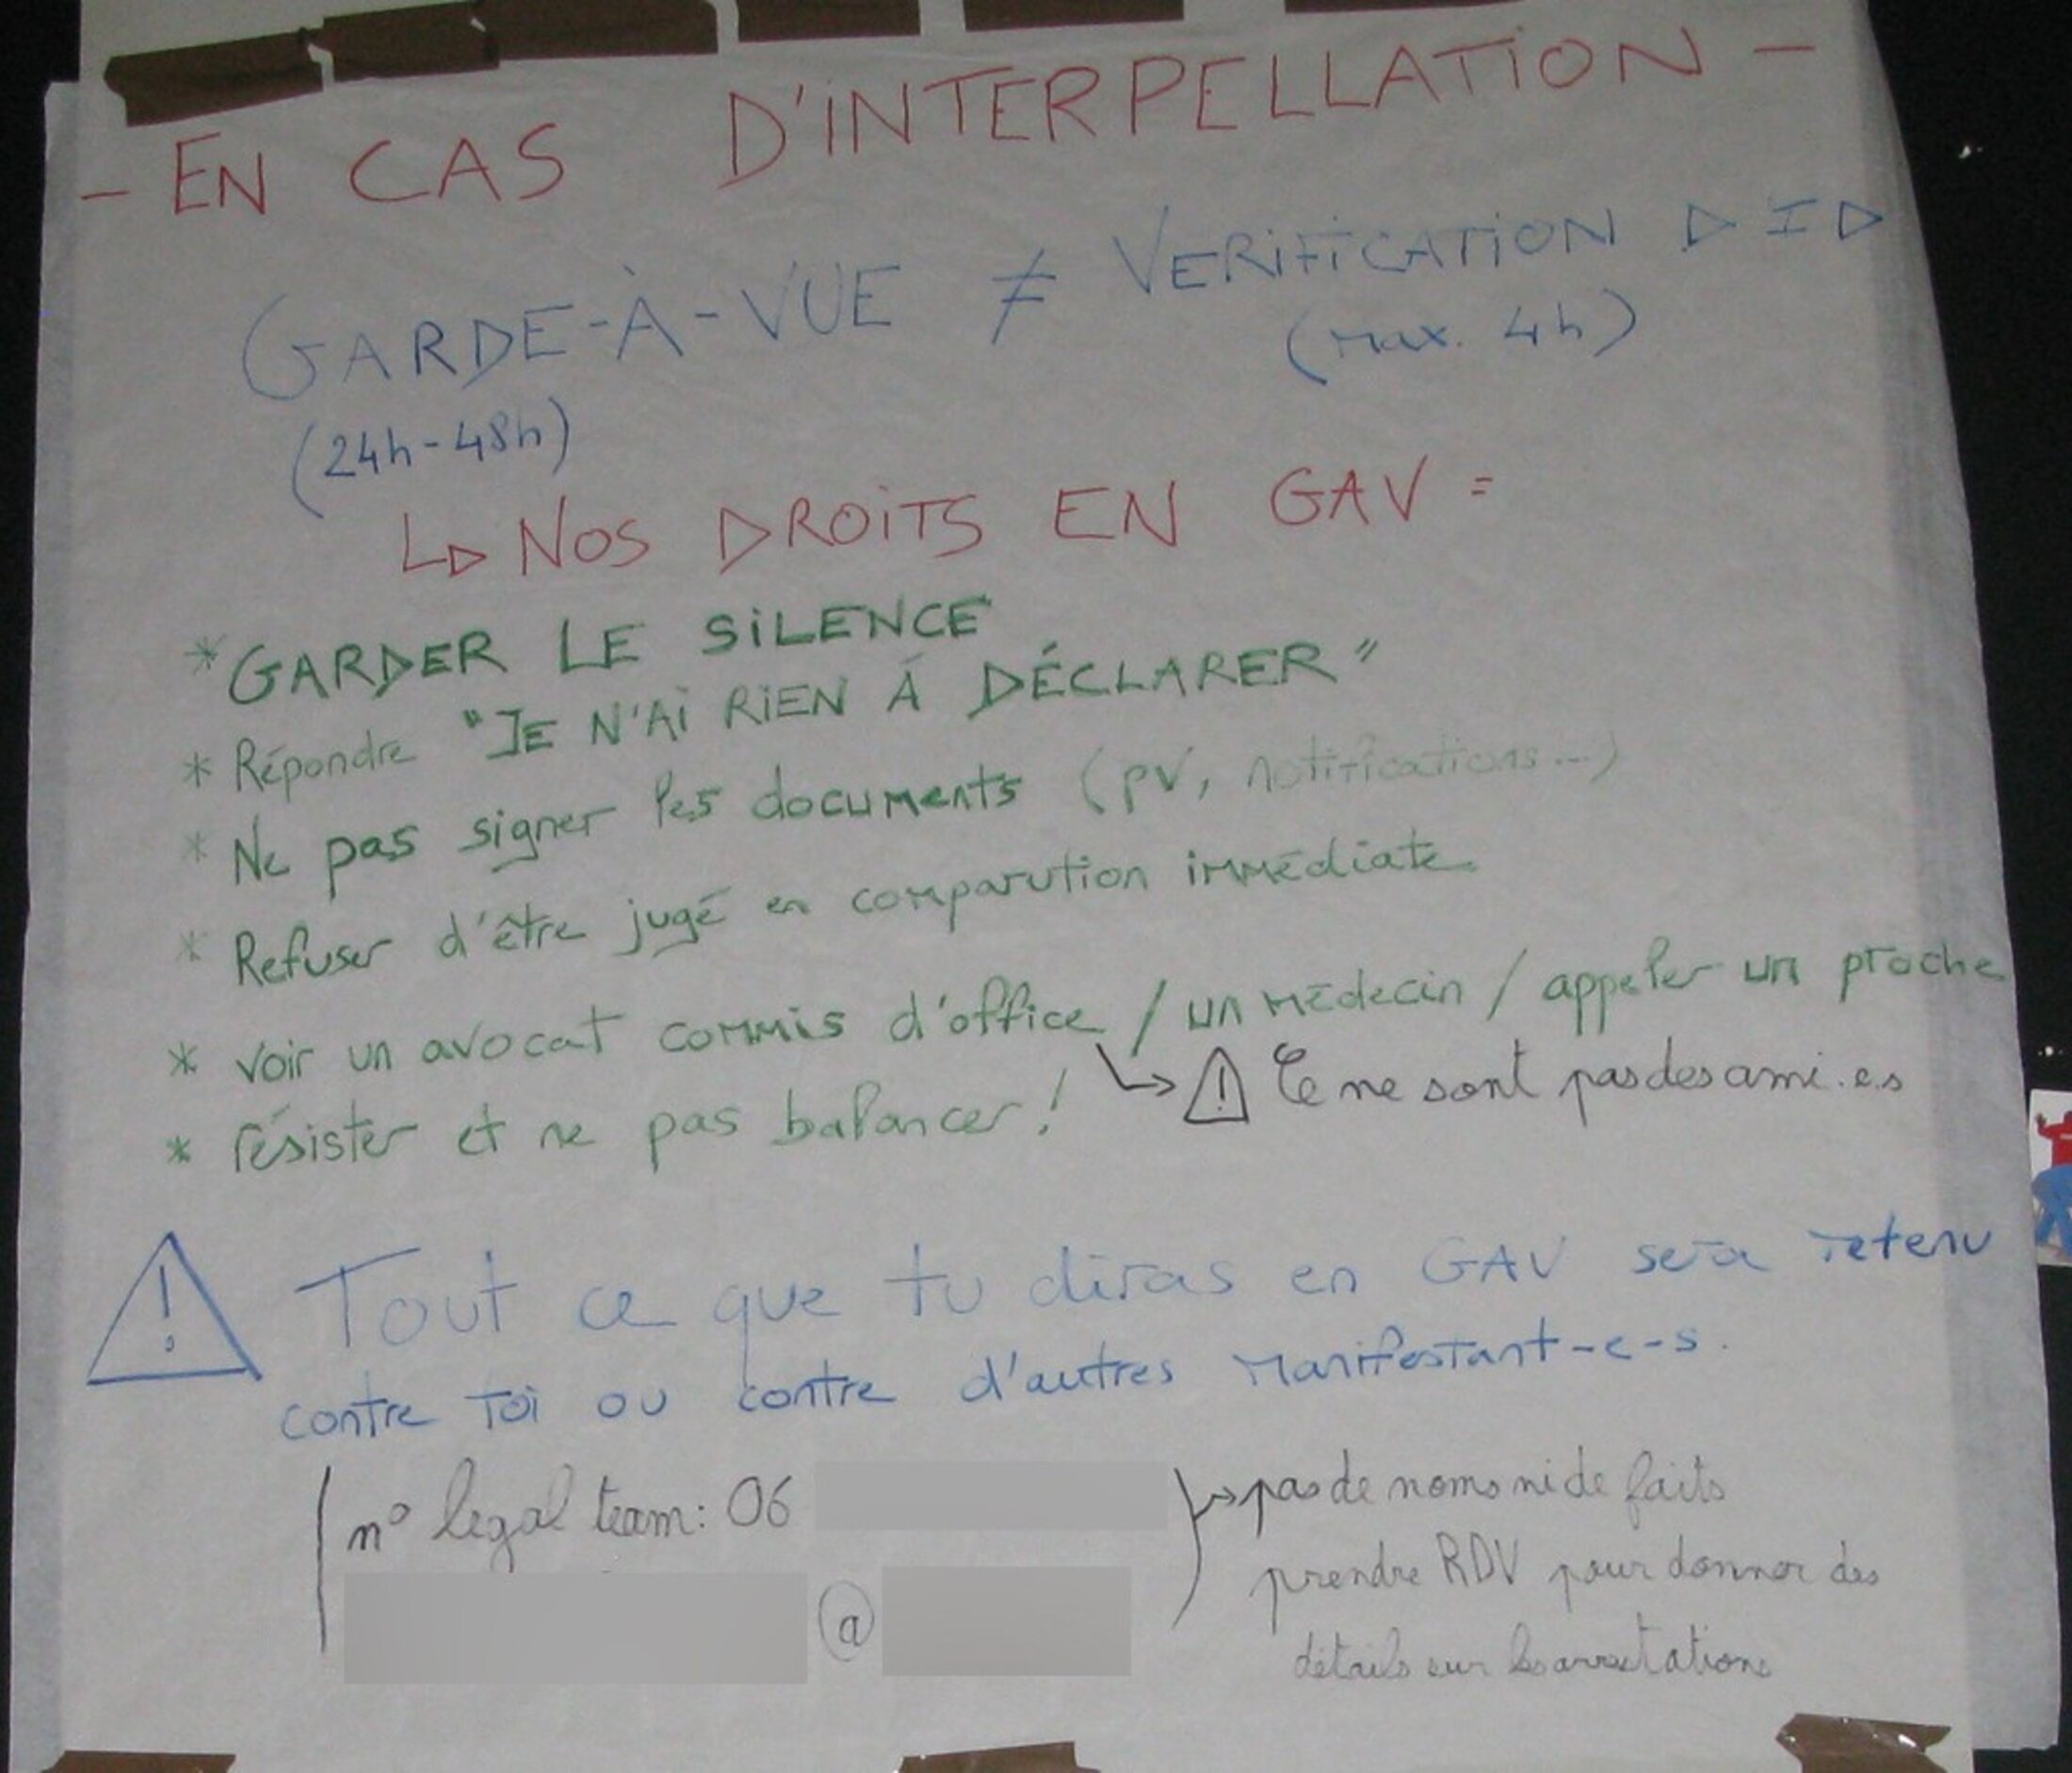 - EN CAS D'INTERPELLATION -
GARDE-À-VUE ≠ VERIFICATION D ID
(24h-48h) (max. 4h)
↳ NOS DROITS EN GAV =
* GARDER LE SILENCE
* Répondre "JE N'AI RIEN À DÉCLARER"
* Ne pas signer les documents (pv, notifications...)
* Refuser d'être jugé en comparution immédiate.
* voir un avocat commis d'office / un médecin / appeler un proche
→ ⚠ Ce ne sont pas des ami.e.s
* résister et ne pas balancer !
⚠ Tout ce que tu diras en GAV sera retenu
contre toi ou contre d'autres manifestant-e-s.
n° legal team: 06
@
→ pas de noms ni de faits
prendre RDV pour donner des
détails sur les arrestations